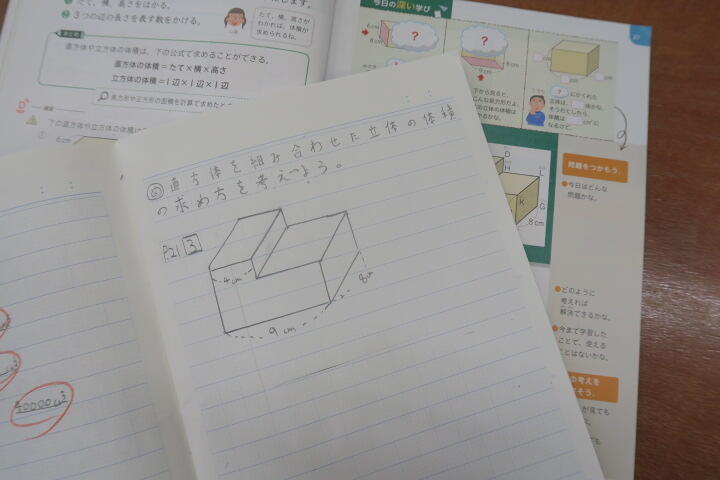 たて、横、高さをはかる。
3つの辺の長さを表す数をかける。
たて、横、高さが
わかれば、体積が
求められるね。
まとめ
直方体や立方体の体積は、下の公式で求めることができる。
直方体の体積=たて×横×高さ
立方体の体積=1辺×1辺×1辺
長方形や正方形の面積を計算で求めたと
下の直方体や立方体の体積は
6cm
今日の深い学び
6cm
?
?
8cm
9cm
cm
cm
cm
下から見ると、
?
にかくれた
立体は、
体積は
cm³に
なるけど、
21
問題をつかもう。
今日はどんな
問題かな。
D
H
L
K
G
8cm
どのように
考えれば
解決できるかな。
今まで学習した
ことで、使える
ことはないかな。
の考えを
そう。
が見ても
直方体を組み合わせた立体の体積
の求め方を考えよう。
P21 3
4cm
9cm
8cm